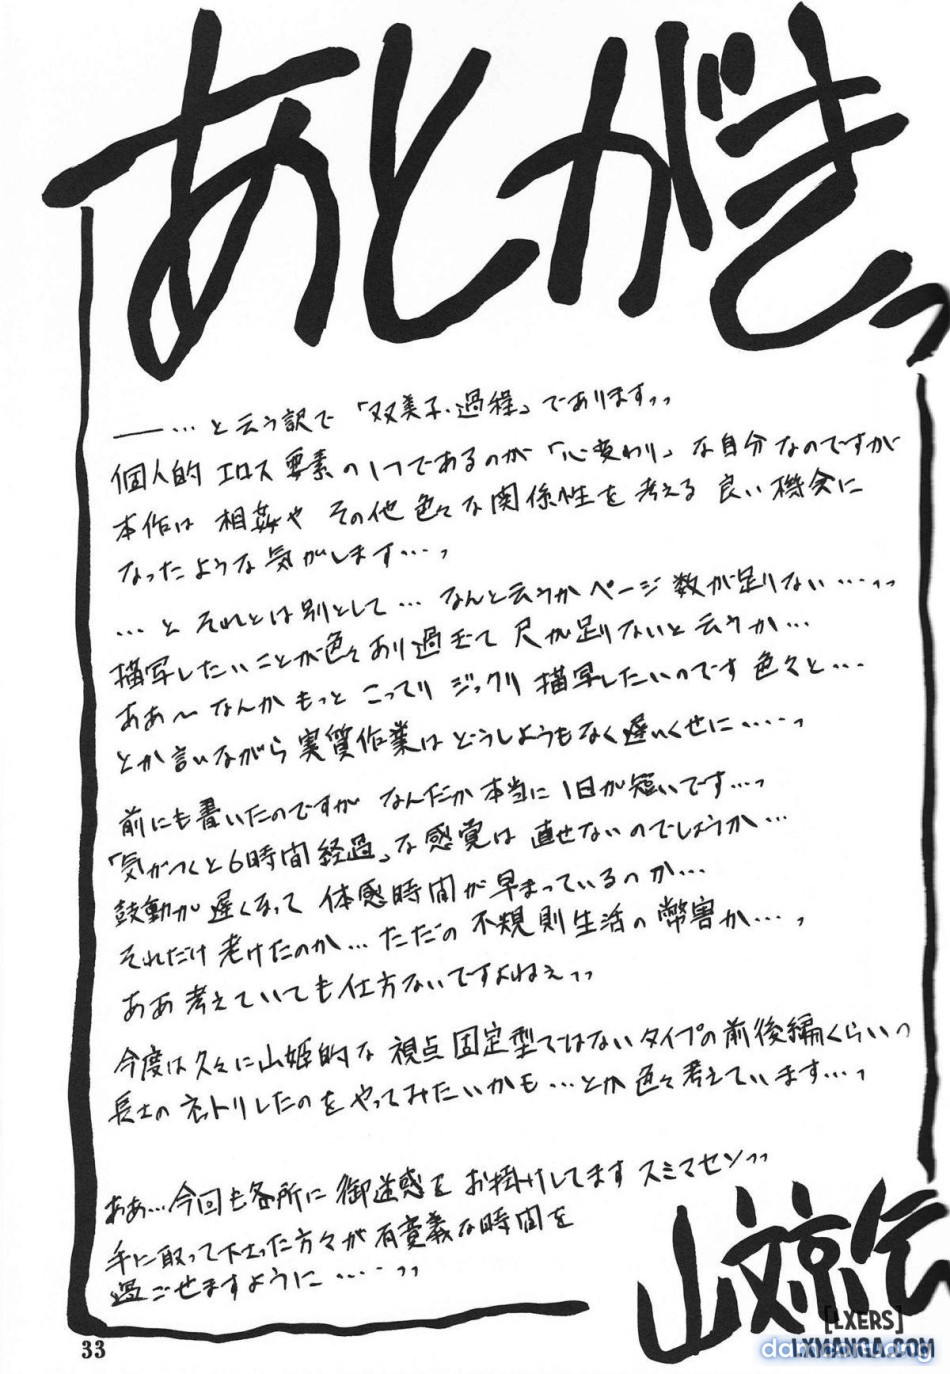 あとがきっ
――…と云う訳で「双美子・過程」でありますッッ
個人的エロス要素の1つであるのが「心変わり」な自分なのですが
本作は相姦やその他色々な関係性を考える良い機会に
なったような気がします…っ
…とそれとは別として…なんと云うかページ数が足りない…ッッ
描写したいことが色々あり過ぎて尺が足りないと云うか…
ああ〜なんかもっとこってりジックリ描写したいのです色々と…
とか言いながら実質作業はどうしようもなく遅いくせに……っ
前にも書いたのですがなんだか本当に1日が短いです…っ
「気がつくと6時間経過」な感覚は直せないのでしょうか…
鼓動が遅くなって体感時間が早まっているのか…
それだけ老けたのか…ただの不規則生活の弊害か…っ
ああ考えていても仕方ないですよねぇッッ
今度は久々に山姫的な視点固定型ではないタイプの前後編くらいっ
長士のネットリしたのをやってみたいかも…とか色々考えています…っ
ああ…今回も各所に御迷惑をお掛けしてますスミマセンッッ
手に取って下さった方々が有意義な時間を
過ごせますように……ッッ
山文京伝
33
[LXERS]
LXMANGA.COM